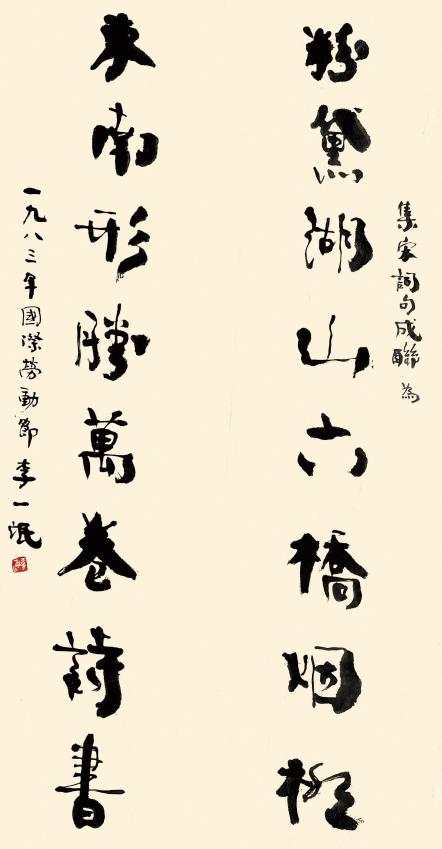 集宋詞句成聯為
粉黛湖山六橋烟柳
東南形勝萬卷詩書
一九八三年國際勞動節 李一氓